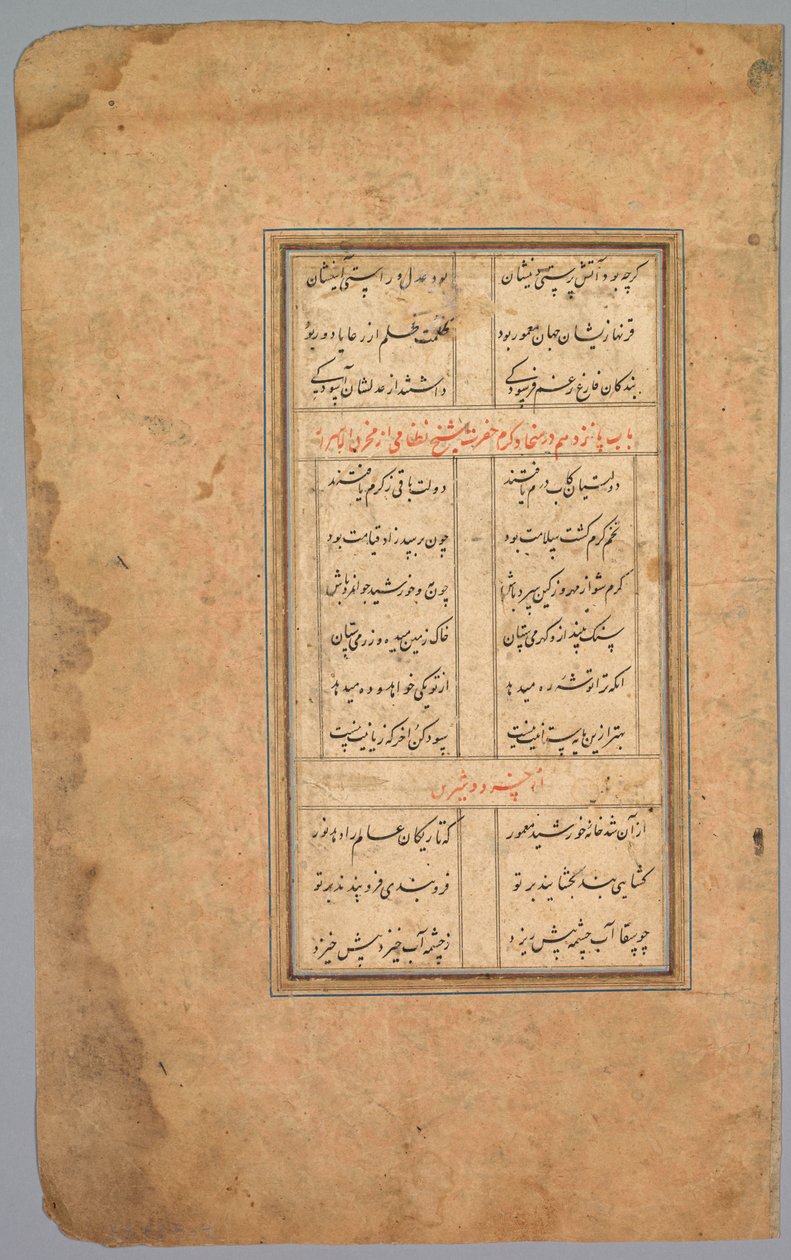 کرچه بود آتش پرستی دینشان بود عدل و راستی آینشان
قرنها زیشان جهان معمور بود ظلمت ظلم از رعایا دور بود
بندکان فارغ زغم فرسودکی داشتند از عدلشان آسودکی
باب پانزدهم در سخا و کرم حضرت شیخ نظامی از مخزن الاسرار
دولتیان کاب و درم یافتند دولت باقی ز کرم یافتند
تخم کرم کشت سلامت بود چون برسد زاد قیامت بود
کرم شو از مهر و ز کین سرد باش چون مه و خورشید جوانمرد باش
سنک بینداز و کهر می ستان خاک زمین میده و زر می ستان
انکه ترا توشه ره میدهد از تو یکی خواهد و ده میدهد
بهتر ازین مایه ستانیت نیست سود کن آخر که زیانیت نیست
از خسرو و شیرین
از آن شد خانه خورشید معمور که تاریکان عالم را دهد نور
کشایی بند بکشایند بر تو فروبندی فروبندند بر تو
چو سقا آب چشمه پیش ریزد ز چشمه آب خیزد پیش خیزد